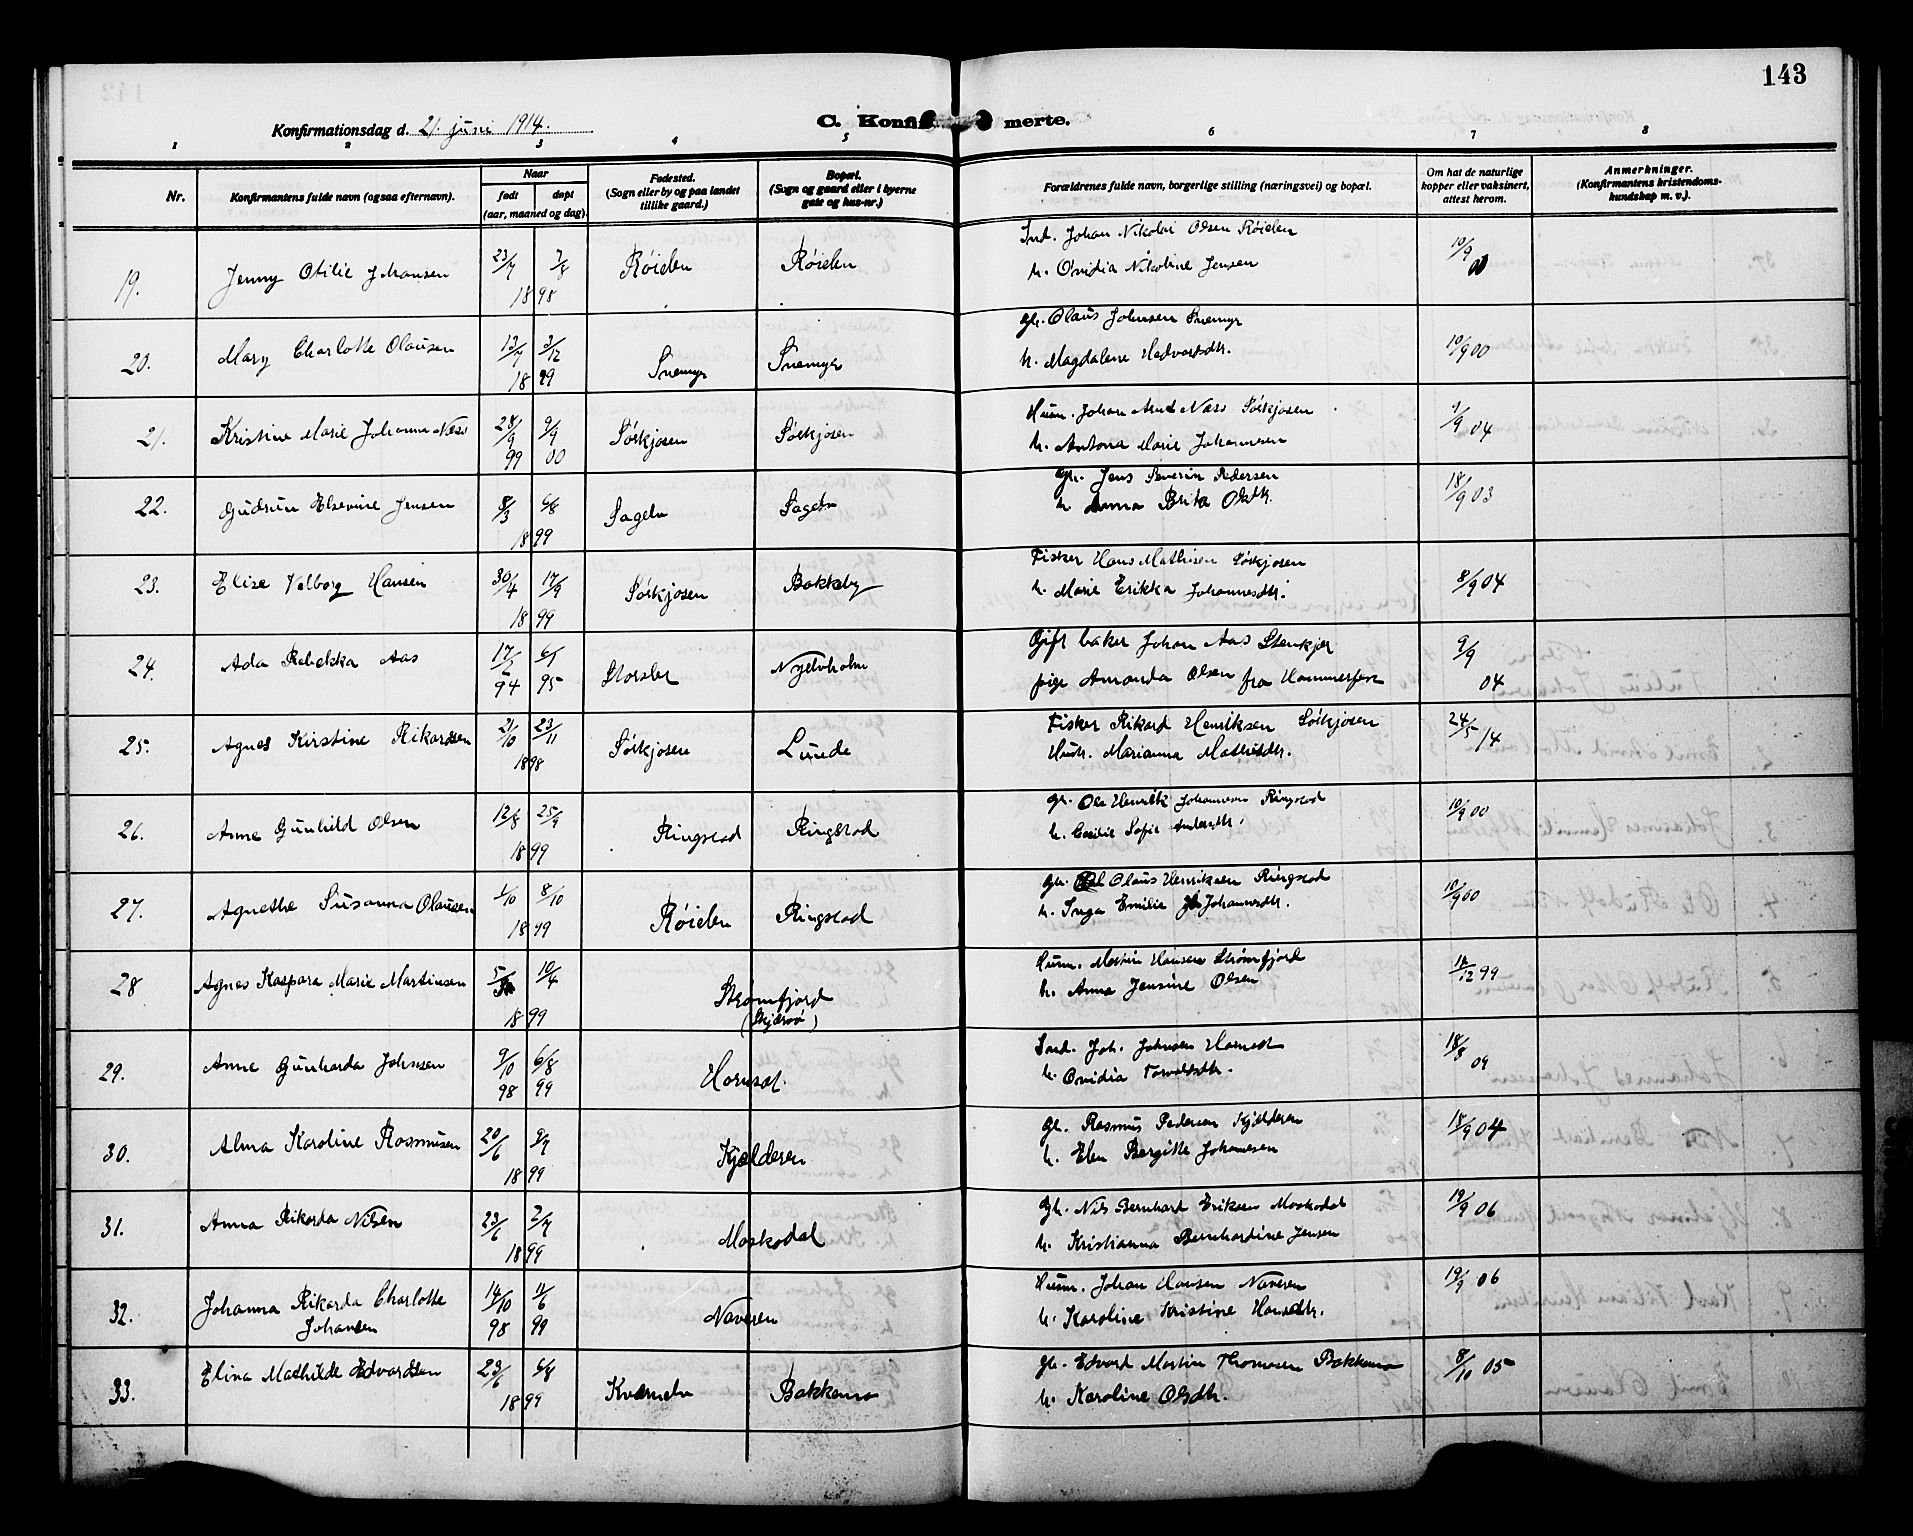 143
Konfirmationsdag d. 21. juni 1914.
C. Konfirmerte.
1 2 3 4 5 6 7 8
Nr. Konfirmantens fulde navn (ogsaa efternavn). Naar født døpt (aar, maaned og dag). Fødested. (Sogn eller by og paa landet tillike gaard.) Bopæl. (Sogn og gaard eller i byerne gate og hus-nr.) Forældrenes fulde navn, borgerlige stilling (næringsvei) og bopæl. Om hat de naturlige kopper eller vaksinert, attest herom. Anmerkninger. (Konfirmantens kristendoms-kundskap m. v.).
19. Jenny Otilie Johansen 23/7 7/8 1898 Røielen Røielen Ind. Johan Nikolai Olsen Røielen
h. Ovidia Nikoline Jensen 10/9 00
20. Mary Charlotte Olausen 13/7 3/12 1899 Snemyr Snemyr gh. Olaus Johnsen Snemyr
h. Magdalene Hedvartsdtr. 10/9 00
21. Kristine Marie Johanna Næss 28/9 99 9/9 00 Sørkjosen Sørkjosen Husm. Johan Arnt Næss Sørkjosen
h. Antona Marie Johannesen 9/9 04
22. Gudrun Elsevine Jensen 8/3 6/8 1899 Sageln Sageln gh. Jens Severin Pedersen
h. Anna Brita Olsdtr. 18/9 03
23. Elise Valborg Hansen 30/4 17/9 1899 Sørkjosen Bakkeby Fisker Hans Mathisen Sørkjosen
h. Marie Erikka Johannesdtr. 8/9 04
24. Ada Rebekka Aas 17/2 94 6/1 95 Storslet Nyelvholm Gift baker Johan Aas Stenkjer
pige Amanda Olsen fra Hammerfest 9/9 04
25. Agnes Kirstine Rikardsen 21/10 23/11 1898 Sørkjosen Lunde Fisker Rikard Henriksen Sørkjosen
Hustr. Marianna Mathisdtr. 24/5 14
26. Anne Gunhild Olsen 12/8 25/9 1899 Ringstad Ringstad gh. Ole Henrik Johannesen Ringstad
h. Cecilie Sofie Andersdtr. 10/9 00
27. Agnethe Susanna Olausen 1/10 8/10 1899 Røielen Ringstad gh. Olaus Henriksen Ringstad
h. Inga Emilie Johannesdtr. 10/9 00
28 Agnes Kaspara Marie Martinsen 5/ 10/4 1899 Strømfjord
(Skjærvø) Husm. Martin Hansen Strømfjord
h. Anna Jensine Olsen 14/12 99
29. Anne Gunharda Johnsen 9/10 98 6/8 99 Hamset Ind. Joh. Johnsen Hamset
h. Ovidia Torvaldsdtr. 18/8 09
30. Alma Karoline Rasmussen 20/6 9/7 1899 Kjelderen gh. Rasmus Pedersen Kjelderen
h. Elen Bergitte Johannesen 18/9 04
31. Anna Rikarda Nilsen 23/6 2/7 1899 Maskodal Gh. Nils Bernhard Eriksen Maskodal
h. Kristianna Bernhardine Jensen 19/9 06
32. Johanna Rikarda Charlotte
Johansen 14/10 98 11/6 99 Naveren Husm. Johan Hansen Naveren
h. Karoline Kristine Hansdtr. 19/9 06
33. Elina Mathilde Edvardsen 23/6 6/8 1899 Kværneln Bakkemo gh. Edvard Martin Thomasen Bakkemo
h. Karoline Olsdtr. 8/10 05